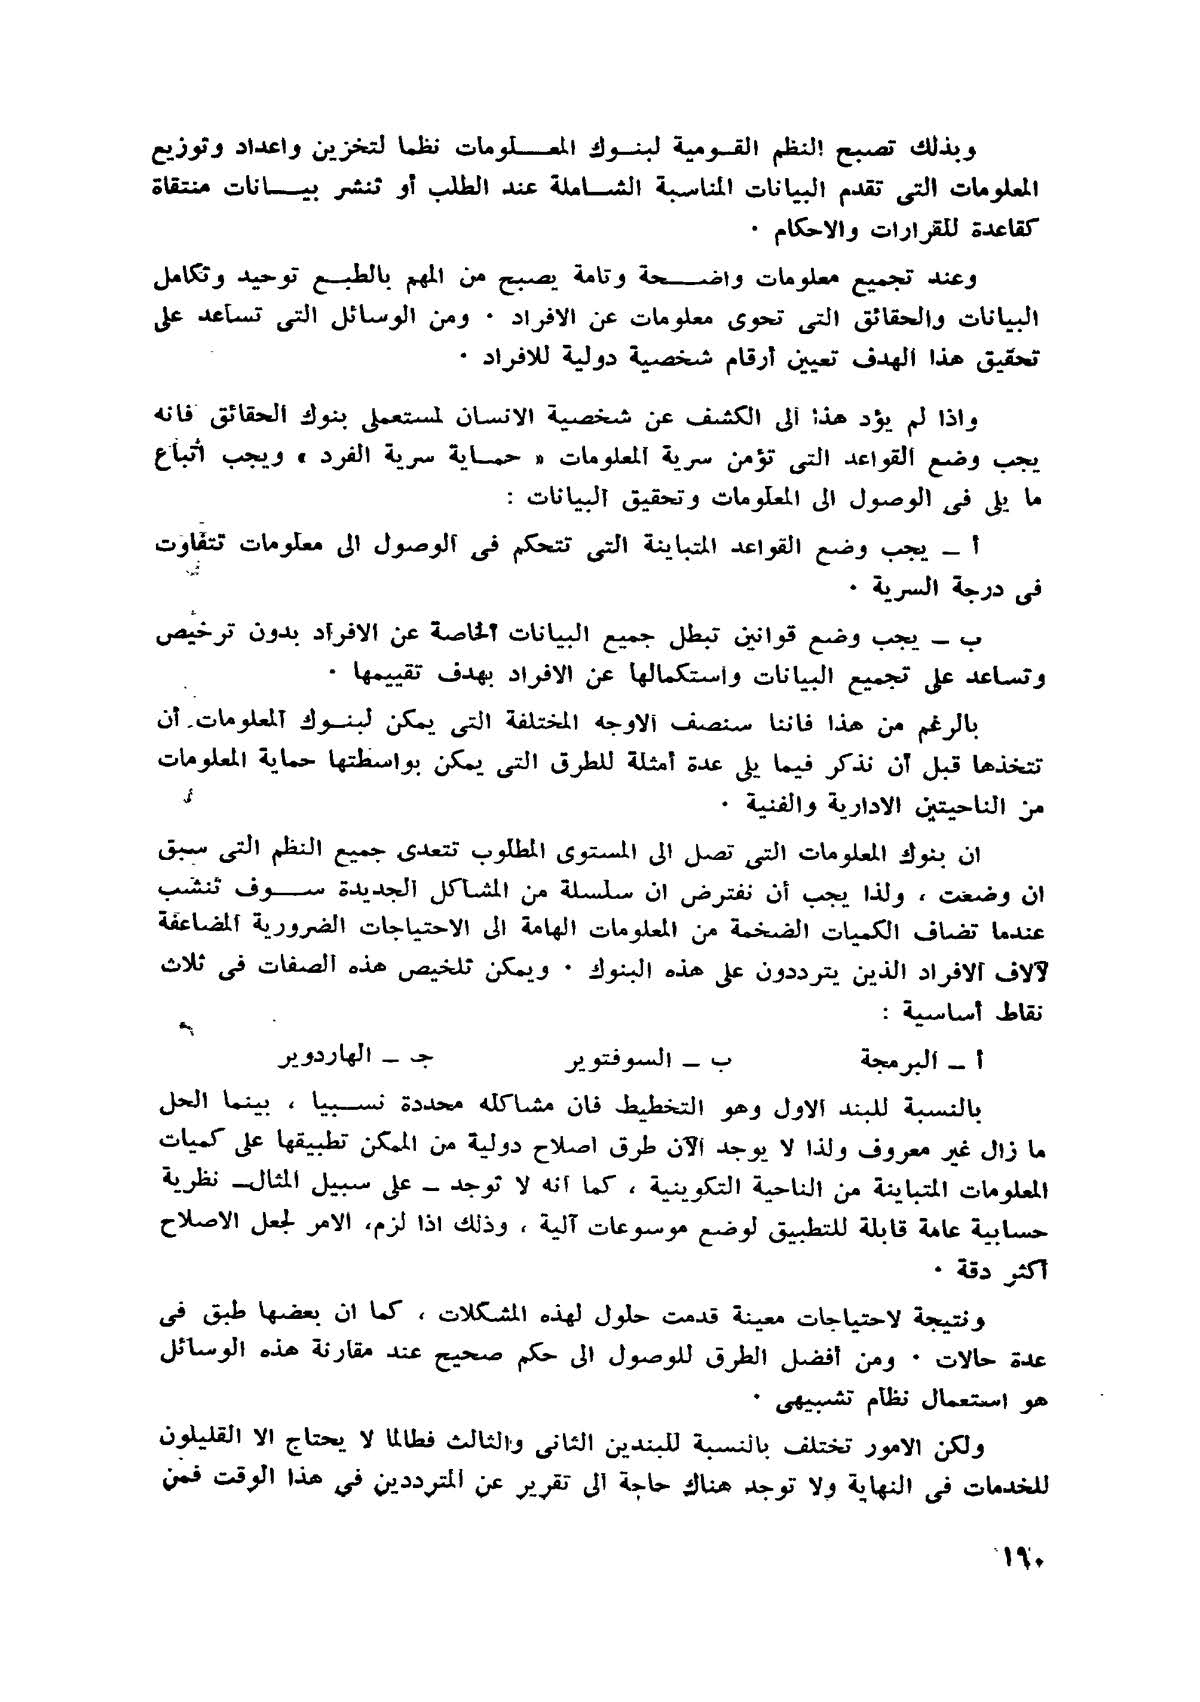 وبذلك تصبح النظم القومية لبنوك المعلومات نظما لتخزين واعداد وتوزيع
المعلومات التى تقدم البيانات المناسبة الشاملة عند الطلب أو تنشر بيانات منتقاة
كقاعدة للقرارات والاحكام ٠
وعند تجميع معلومات واضحة وتامة يصبح من المهم بالطبع توحيد وتكامل
البيانات والحقائق التى تحوى معلومات عن الافراد ٠ ومن الوسائل التى تساعد على
تحقيق هذا الهدف تعيين أرقام شخصية دولية للافراد ٠
واذا لم يؤد هذا الى الكشف عن شخصية الانسان لمستعملى بنوك الحقائق فانه
يجب وضع القواعد التى تؤمن سرية المعلومات « حماية سرية الفرد » ويجب اتباع
ما يلى فى الوصول الى المعلومات وتحقيق البيانات :
أ ــ يجب وضع القواعد المتباينة التى تتحكم فى الوصول الى معلومات تتفاوت
فى درجة السرية ٠
ب ــ يجب وضع قوانين تبطل جميع البيانات الخاصة عن الافراد بدون ترخيص
وتساعد على تجميع البيانات واستكمالها عن الافراد بهدف تقييمها ٠
بالرغم من هذا فاننا سنصف الاوجه المختلفة التى يمكن لبنوك المعلومات أن
تتخذها قبل أن نذكر فيما يلى عدة أمثلة للطرق التى يمكن بواسطتها حماية المعلومات
من الناحيتين الادارية والفنية ٠
ان بنوك المعلومات التى تصل الى المستوى المطلوب تتعدى جميع النظم التى سبق
ان وضعت ، ولذا يجب أن نفترض ان سلسلة من المشاكل الجديدة سوف تنشب
عندما تضاف الكميات الضخمة من المعلومات الهامة الى الاحتياجات الضرورية المضاعفة
لآلاف الافراد الذين يترددون على هذه البنوك ٠ ويمكن تلخيص هذه الصفات فى ثلاث
نقاط أساسية :
أ ــ البرمجة ب ــ السوفتوير جـ ــ الهاردوير
بالنسبة للبند الاول وهو التخطيط فان مشاكله محددة نسبيا ، بينما الحل
ما زال غير معروف ولذا لا يوجد الآن طرق اصلاح دولية من الممكن تطبيقها على كميات
المعلومات المتباينة من الناحية التكوينية ، كما أنه لا توجد ــ على سبيل المثال ــ نظرية
حسابية عامة قابلة للتطبيق لوضع موسوعات آلية ، وذلك اذا لزم، الامر لجعل الاصلاح
أكثر دقة ٠
ونتيجة لاحتياجات معينة قدمت حلول لهذه المشكلات ، كما ان بعضها طبق فى
عدة حالات ٠ ومن أفضل الطرق للوصول الى حكم صحيح عند مقارنة هذه الوسائل
هو استعمال نظام تشبيهى ٠
ولكن الامور تختلف بالنسبة للبندين الثانى والثالث فطالما لا يحتاج الا القليلون
للخدمات فى النهاية ولا توجد هناك حاجة الى تقرير عن المترددين في هذا الوقت فمن
١٩٠